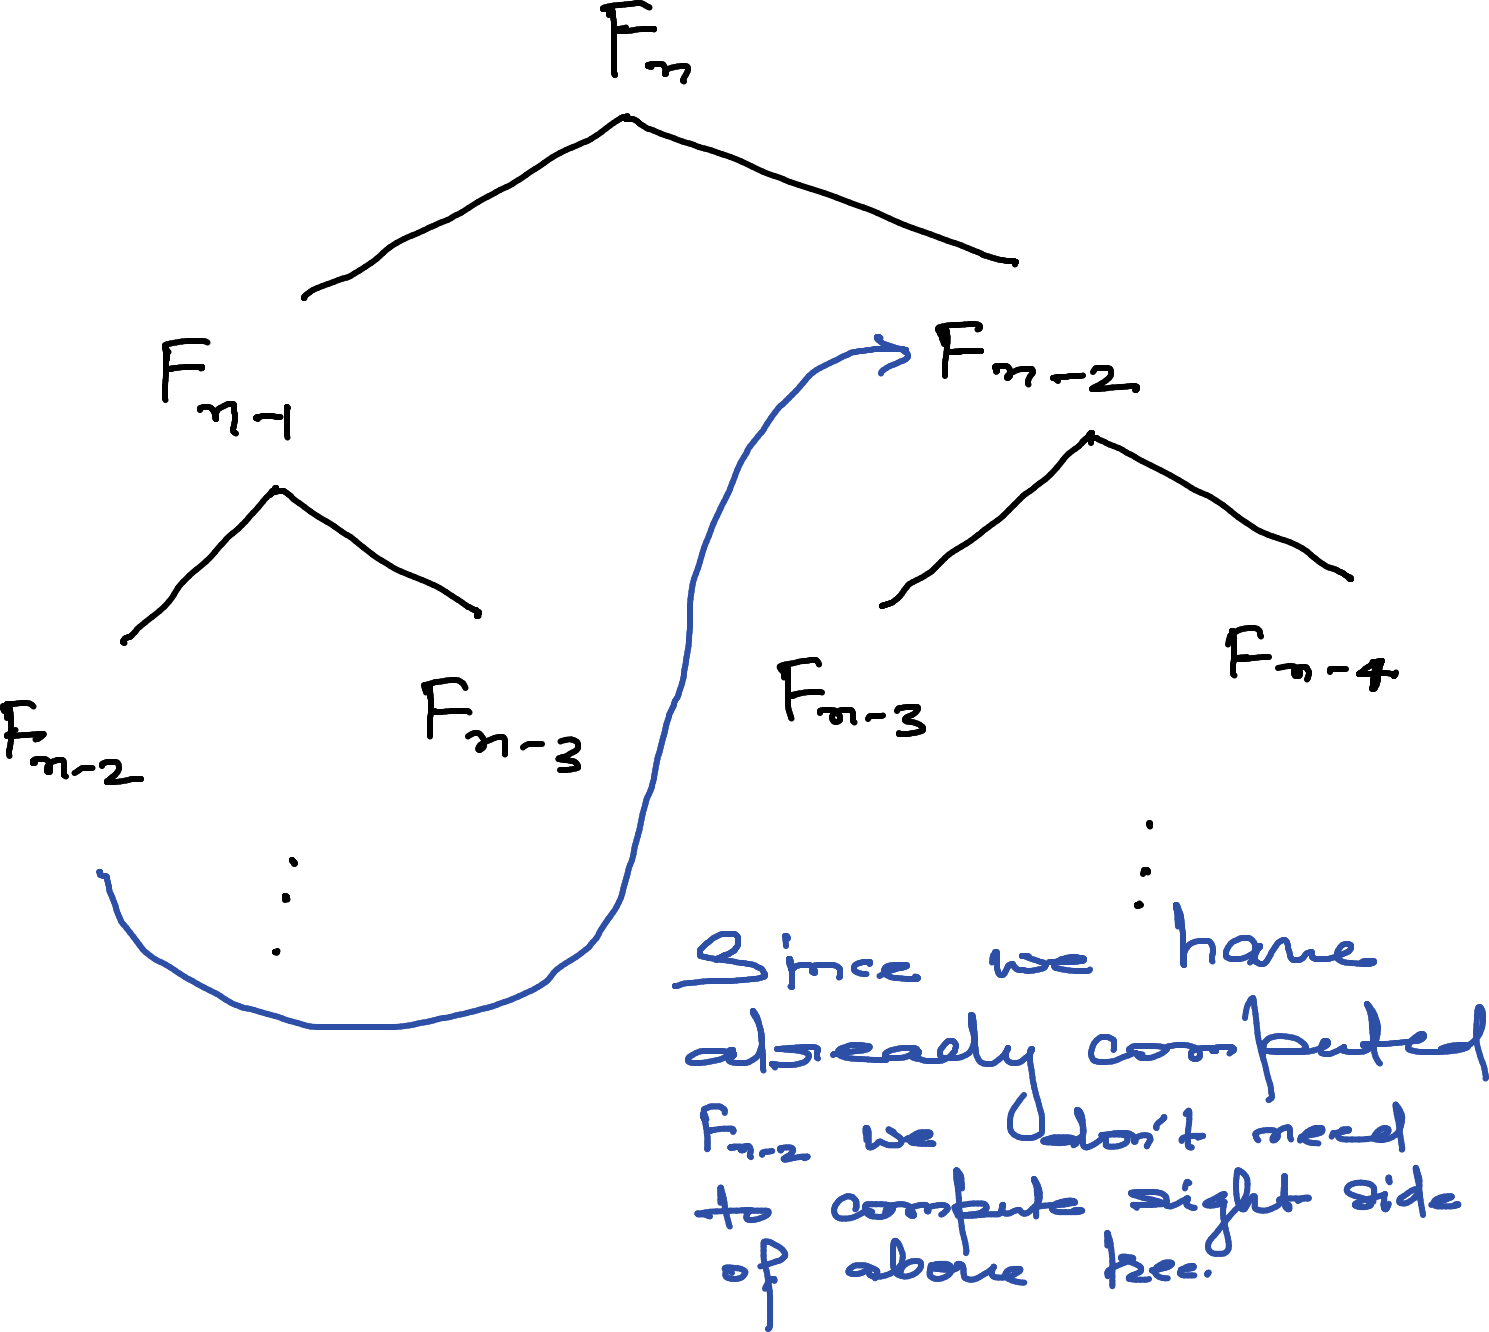 Fn
Fn-1
Fn-2
Fn-2
Fn-3
Fn-3
Fn-4
Since we have
already computed
Fn-2 we don't need
to compute right side
of above tree.